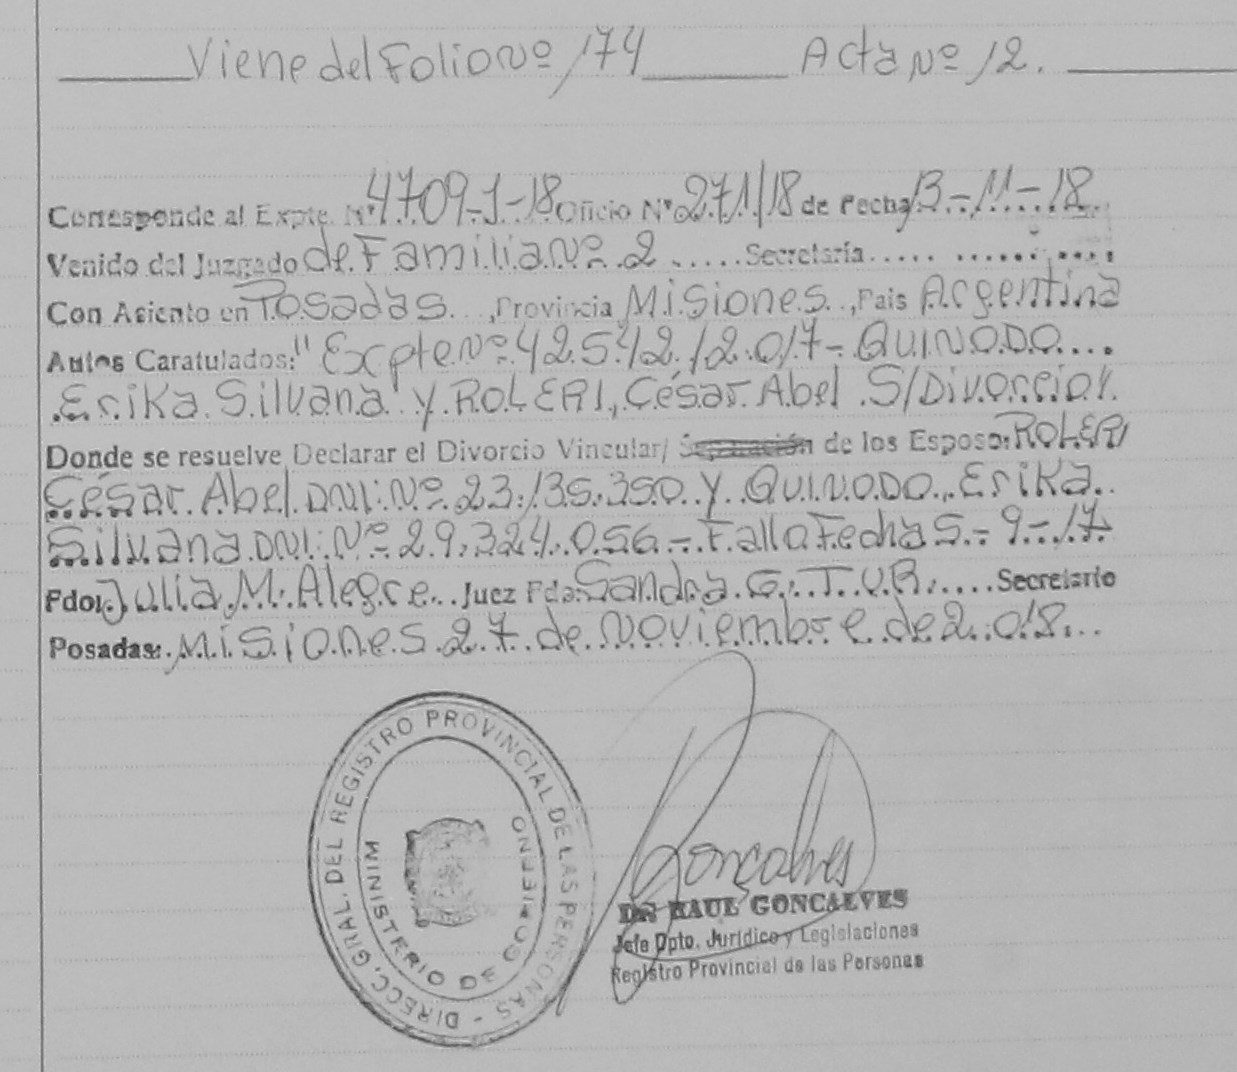 Viene del Folio Nº 174 Acta Nº 12.
Corresponde al Expte. Nº 4709-J-18 Oficio Nº 271/18 de Fecha 13-11-18
Venido del Juzgado de Familia Nº 2 ..... Secretaría ..... ..........
Con Asiento en Posadas..., Provincia Misiones.., Pais Argentina
Autos Caratulados: "Expte Nº 42542/2017- QUINODO....
Erika Silvana y ROLERI, César Abel S/Divorcio".
Donde se resuelve Declarar el Divorcio Vincular/ Separación de los Esposo: ROLERI
César Abel DNI: Nº 23.135.350 y QUINODO, Erika
Silvana DNI: Nº 29.324.056 - Fallo Fecha 5-9-17.
Fdo: Julia M. Alegre.. Juez Fdo: Sandra G. T.U.R..... Secretario
Posadas: Misiones 27 de Noviembre de 2018...
DIRECC. GRAL. DEL REGISTRO PROVINCIAL DE LAS PERSONAS -
MINISTERIO DE GOBIERNO
Goncalves
DR. RAUL GONCALVES
Jefe Dpto. Jurídico y Legislaciones
Registro Provincial de las Personas